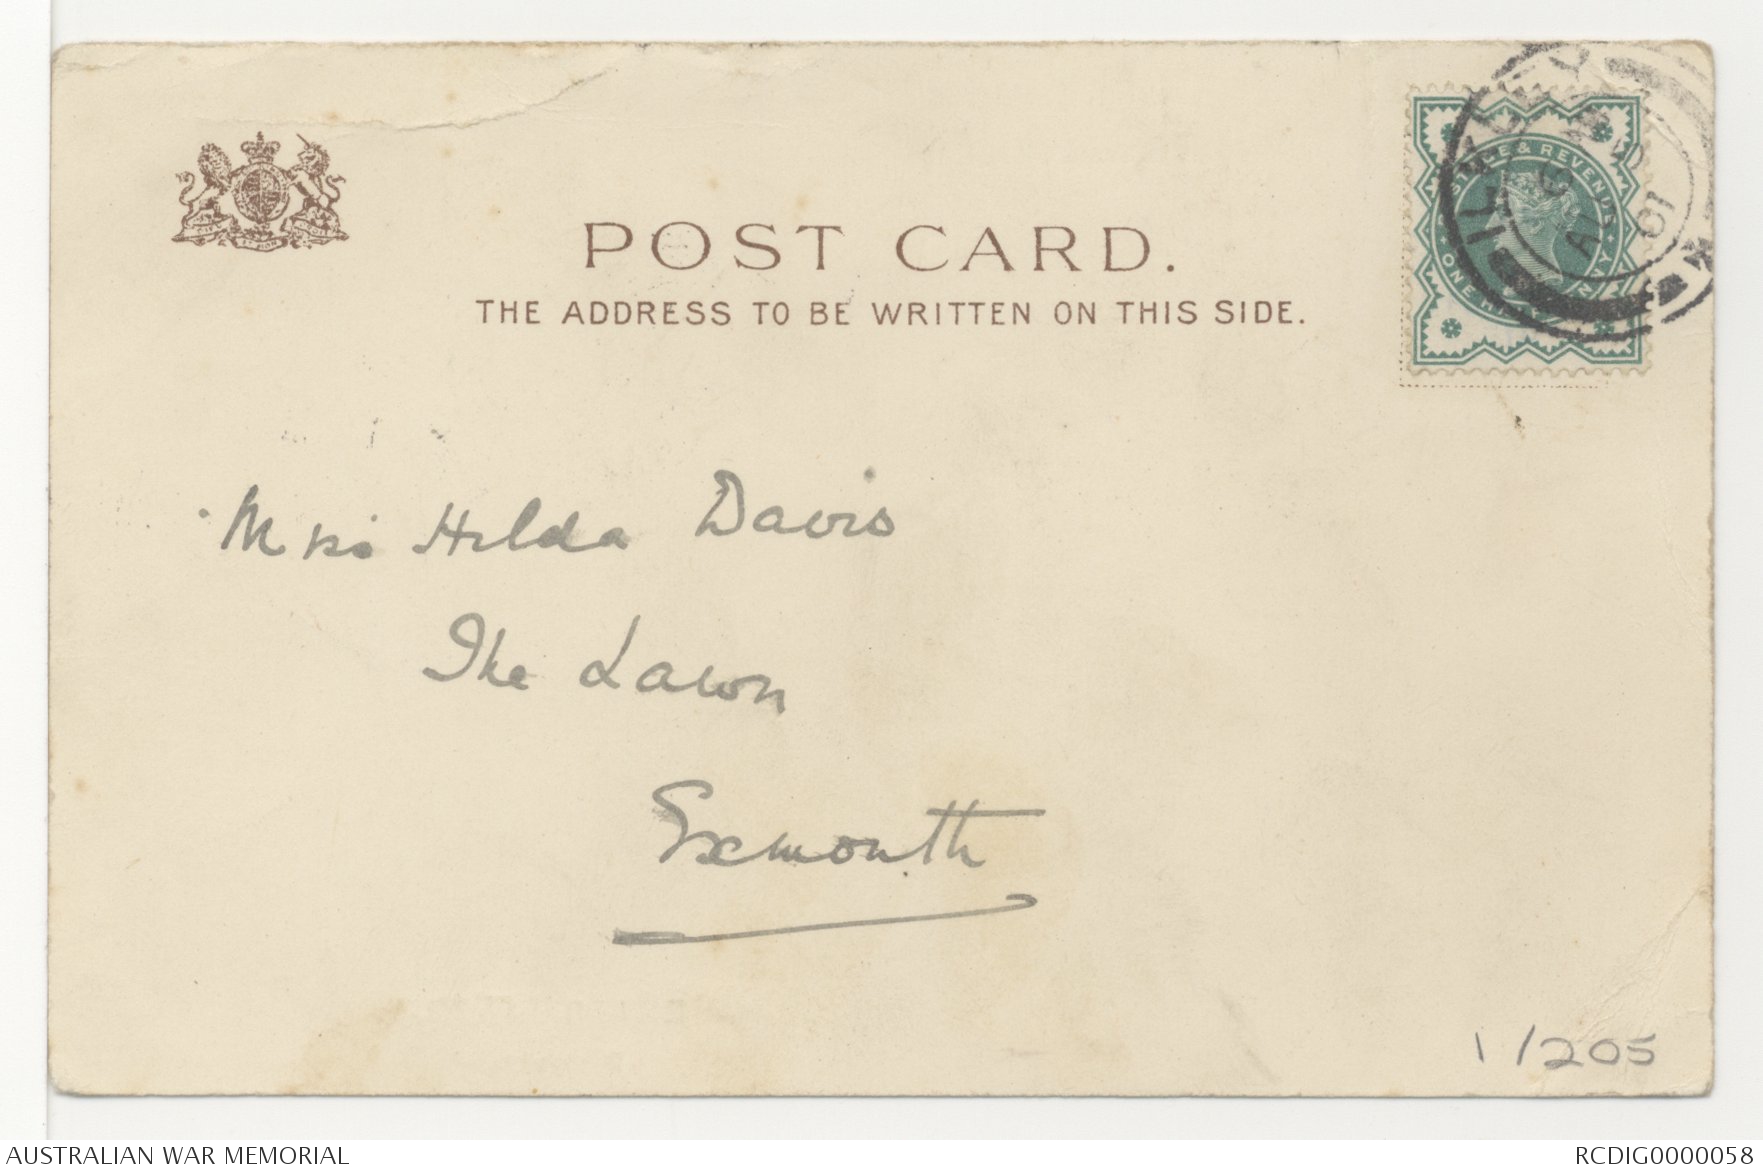 POST CARD.
THE ADDRESS TO BE WRITTEN ON THIS SIDE.
POSTAGE & REVENUE
ONE
AU
01
Miss Hilda Davis
The Lawn
Exmouth
1/205
AUSTRALIAN WAR MEMORIAL
RCDIG0000058